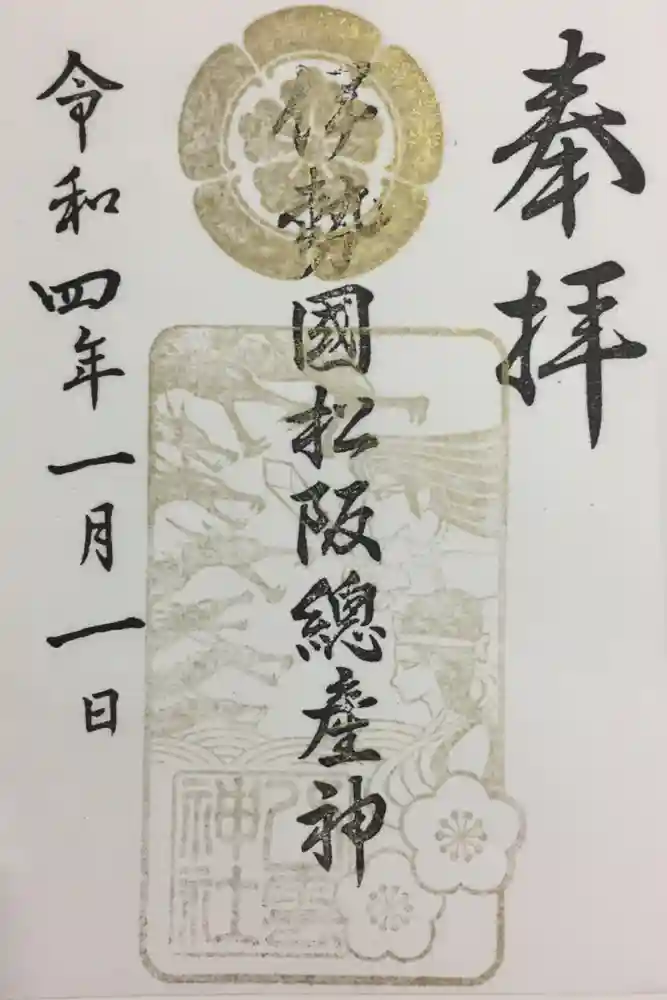 奉拝
伊勢國松阪總産神
八雲神社
令和四年一月一日